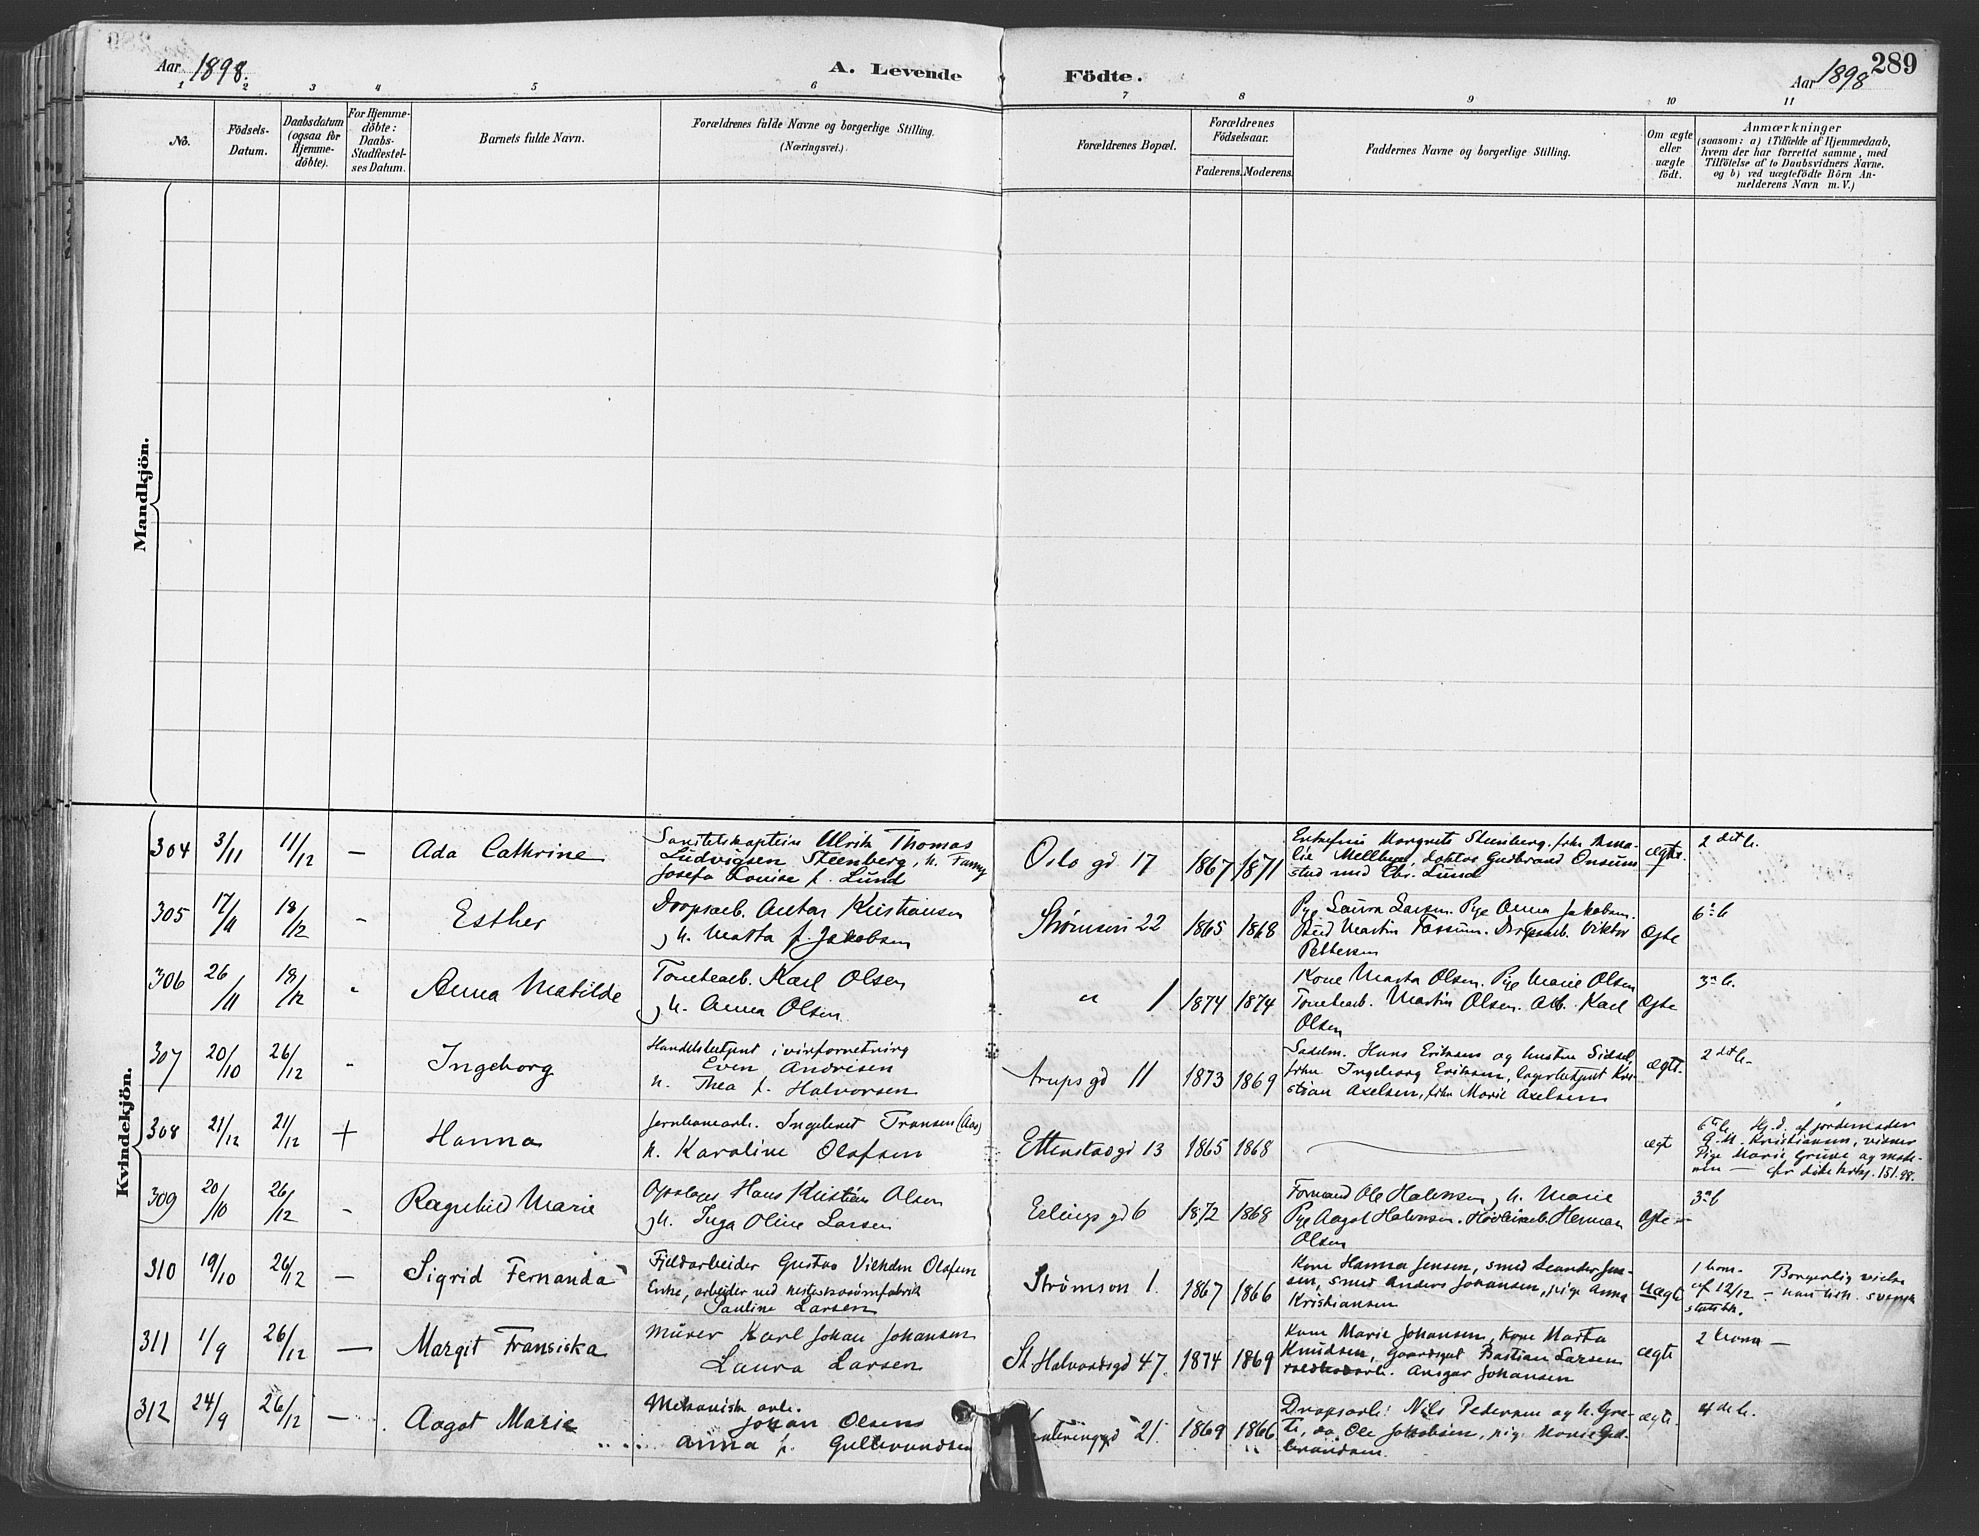 Aar 1898.
A. Levende Födte.
Aar 1898
289
1 2 3 4 5 6 7 8 9 10 11
No.
Födsels-Datum.
Daabsdatum (ogsaa for Hjemmedöbte).
For Hjemmedöbte: Daabs-Stadfestelses Datum.
Barnets fulde Navn.
Forældrenes fulde Navne og borgerlige Stilling.
(Næringsvei.)
Forældrenes Bopæl.
Forældrenes Födselsaar.
Faderens. Moderens.
Faddernes Navne og borgerlige Stilling.
Om ægte eller uægte födt.
Anmærkninger
(saasom: a) i Tilfælde af Hjemmedaab,
hvem der har forrettet samme, med
Tilföielse af to Daabsvidners Navne.
og b) ved uægtefödte Börn An-
melderens Navn m. V.)
Mandkjön.
Kvindekjön.
304 3/11 11/12 — Ada Cathrine
Sanitetskaptein Ulrik Thomas
Ludvigsen Steenberg, h. Fanny
Josefa Louise f. Lund
Oslo gd 17 1867 1871
Margrete Steenberg, frk.
Mellbye, doktor Gudbrand
stud med Chr. Lund
ægte.
305 17/11 18/12 - Esther
Dropsarb. Anton Kristiansen
h. Marta f. Jakobsen
Strømsvei 22 1865 1868
Pge Laura Larsen. Pge Anna Jakobsen.
Martin Fossum. Viktor
Pettersen
Ægte
306 26/11 18/12 - Anna Matilde
Karl Olsen
h. Anna Olsen
" 1 1874 1874
Kone Marta Olsen. Pge Marie Olsen
Martin Olsen. Arb. Karl
Olsen
Ægte
307 20/10 26/12 - Ingeborg
Handelsbetjent i vinforretning
Even Andresen
h. Thea f. Halvorsen
Arups gd 11 1873 1869
Sadelm. Hans Eriksen og hustru Sidsel,
frkn Ingeborg Eriksen, lagerbetjent Kri-
stian Axelsen, frkn Marie Axelsen
ægte.
308 21/12 21/12 + Hanna
Jernbanearb. Ingebret Fransen (Aas)
h. Karoline Olafsen
Ettenstadgd 13 1865 1868
ægte
hj. d. af jordemoder
G. M. Kristiansen, vidner
Pige Marie Gruve og mode-
ren —
309 20/10 26/12 - Ragnhild Marie
Hans Kristian Olsen
h. Inga Oline Larsen
Erlings gd 6 1872 1868
Formand Ole Halvorsen, h. Marie
Pge Aagot Halvorsen. Herman
Olsen
ægte
310 19/10 26/12 — Sigrid Fernanda
Fjeldarbeider Gustav Vilhelm Olafsen
Enke, arbeider ved hesteskosømfabrik
Pauline Larsen
Strømsvn 1. 1867 1866
Kone Hanna Jensen, smed Leander Jen-
sen, smed Anders Johansen, pige Anna
Kristiansen
uægte
Borgerlig vielse
af 12/12
311 1/9 26/12 — Margit Fransiska
Murer Karl Johan Johansen
Laura Larsen
St Halvordsgd 47. 1874 1869
Kone Marie Johansen, kone Marta
Knudsen, gaardsgut Bastian Larsen
Ansgar Johansen
ægte
312 24/9 26/12 — Aagot Marie
Mekanisk arb.
Johan Olsen
Anna f. Gulbrandsen
21. 1869 1866
Dropsarb. Nils Pedersen og h. Gre-
Ole Jakobsen, pig. Marie Gul-
brandsen.
ægte.